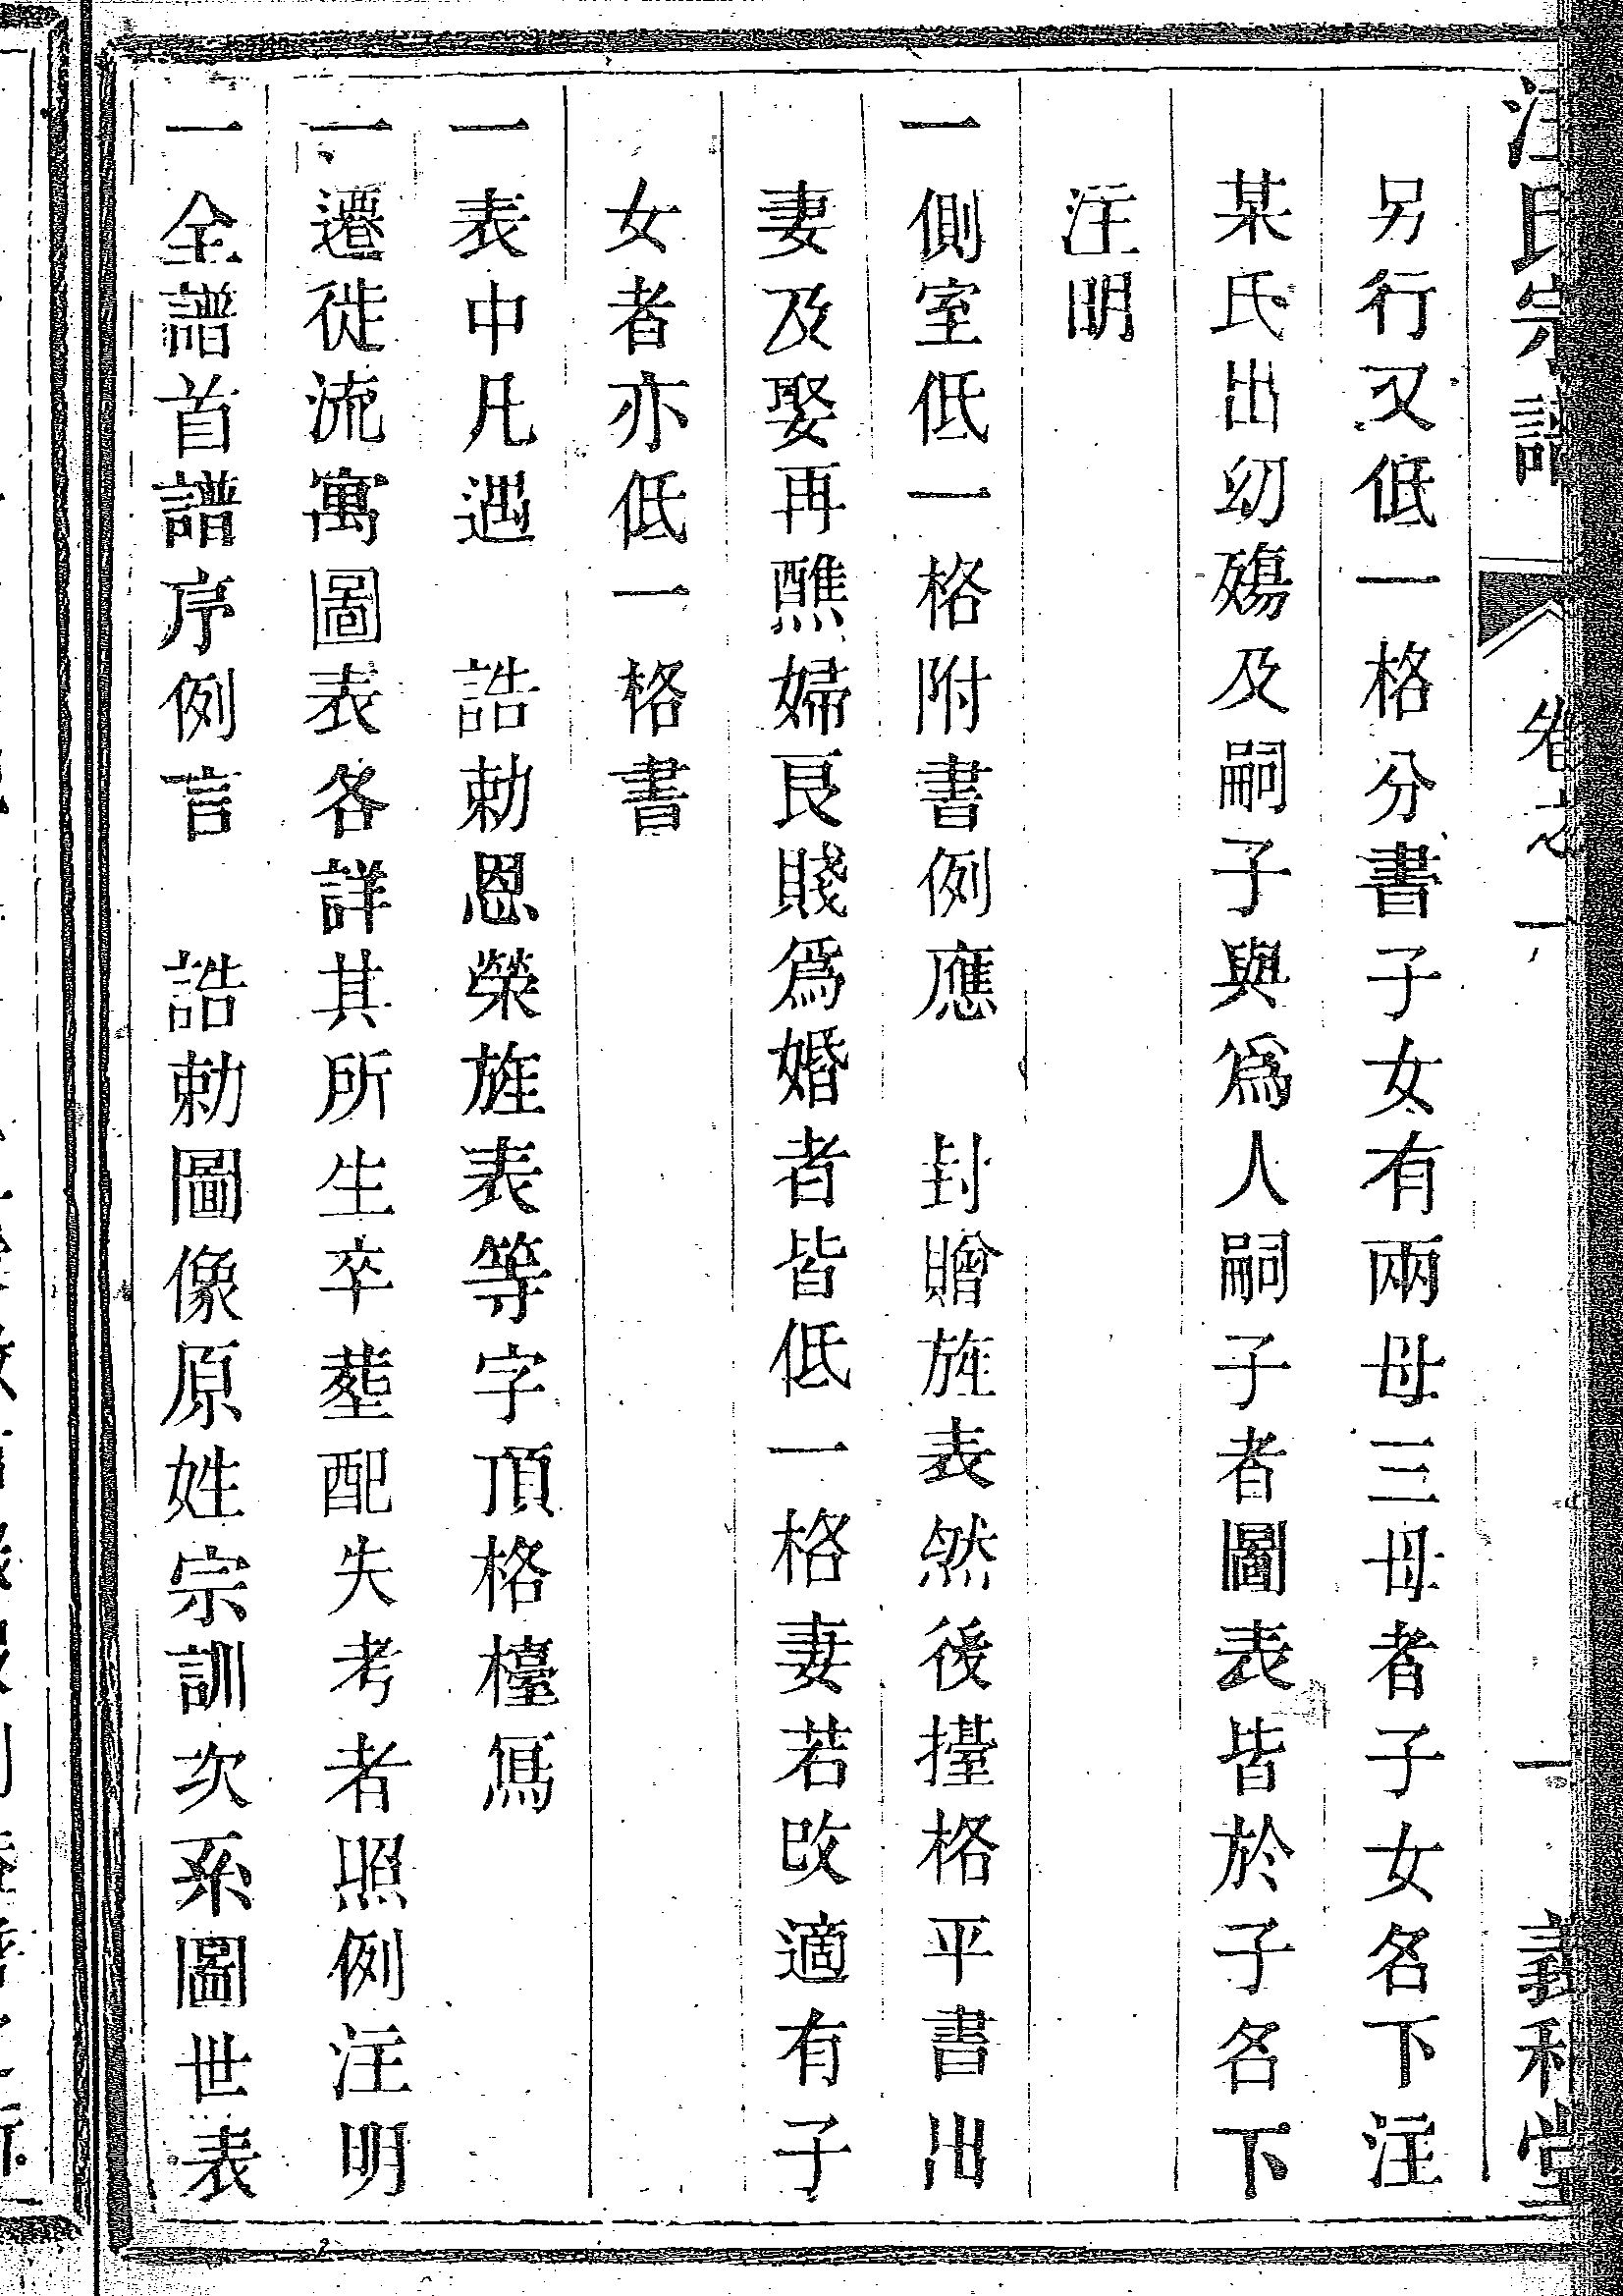 汪氏宗譜 卷之一 一 義和堂
另行又低一格分書子女有兩母三母者子女名下注
某氏出幼殤及嗣子與爲人嗣子者圖表皆於子名下
注明
一側室低一格附書例應 封贈旌表然後擡格平書出
妻及娶再醮婦良賤爲婚者皆低一格妻若改適有子
女者亦低一格書
一表中凡遇 誥勅恩榮旌表等字頂格檯寫
一遷徙流寓圖表各詳其所生卒葬配失考者照例注明
一全譜首譜序例言 誥勅圖像原姓宗訓次系圖世表